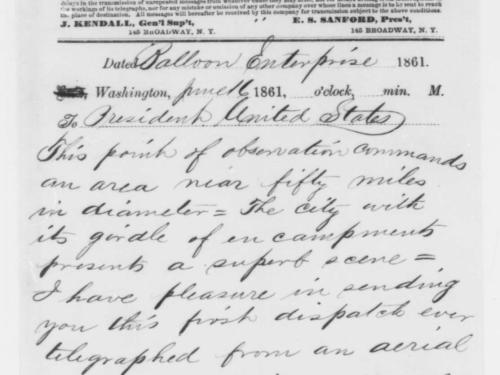 delays in the transmission of unrepeated messages from whatever cause they may arise, nor for
the workings of its telegraphs, nor for any mistake or omission of any other company over whose lines a message is to be sent to reach
its place of destination. All messages will hereafter be received by this company for transmission subject to the above conditions.
J. KENDALL, Gen'l Sup't,
E. S. SANFORD, Pres't,
145 BROADWAY, N. Y.
145 BROADWAY, N. Y.
Dated Balloon Enterprise 1861.
Washington, June 16 1861, o'clock, min. M.
To President United States
This point of observation commands
an area near fifty miles
in diameter = The city with
its girdle of encampments
presents a superb scene =
I have pleasure in sending
you this first dispatch ever
telegraphed from an aerial